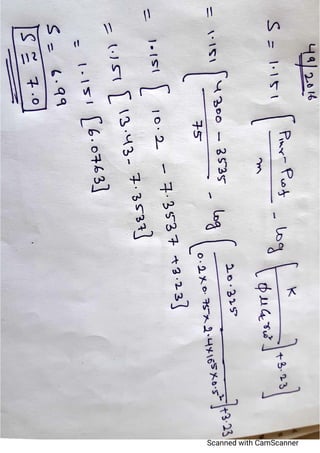 4/9/2016
S = 1.151 [ P1hr - Pwf / m - log [ K / φμCt rω² ] + 3.23 ]
= 1.151 [ 4300 - 3535 / 75 - log ( 20.325 / 0.2×0.75×2.4×10⁵×0.5² ) + 3.23
= 1.151 [ 10.2 - 7.3537 + 3.23 ]
= 1.151 [ 13.43 - 7.3537 ]
= 1.151 [6.0763]
S = 6.99
S ≅ 7.0
Scanned with CamScanner